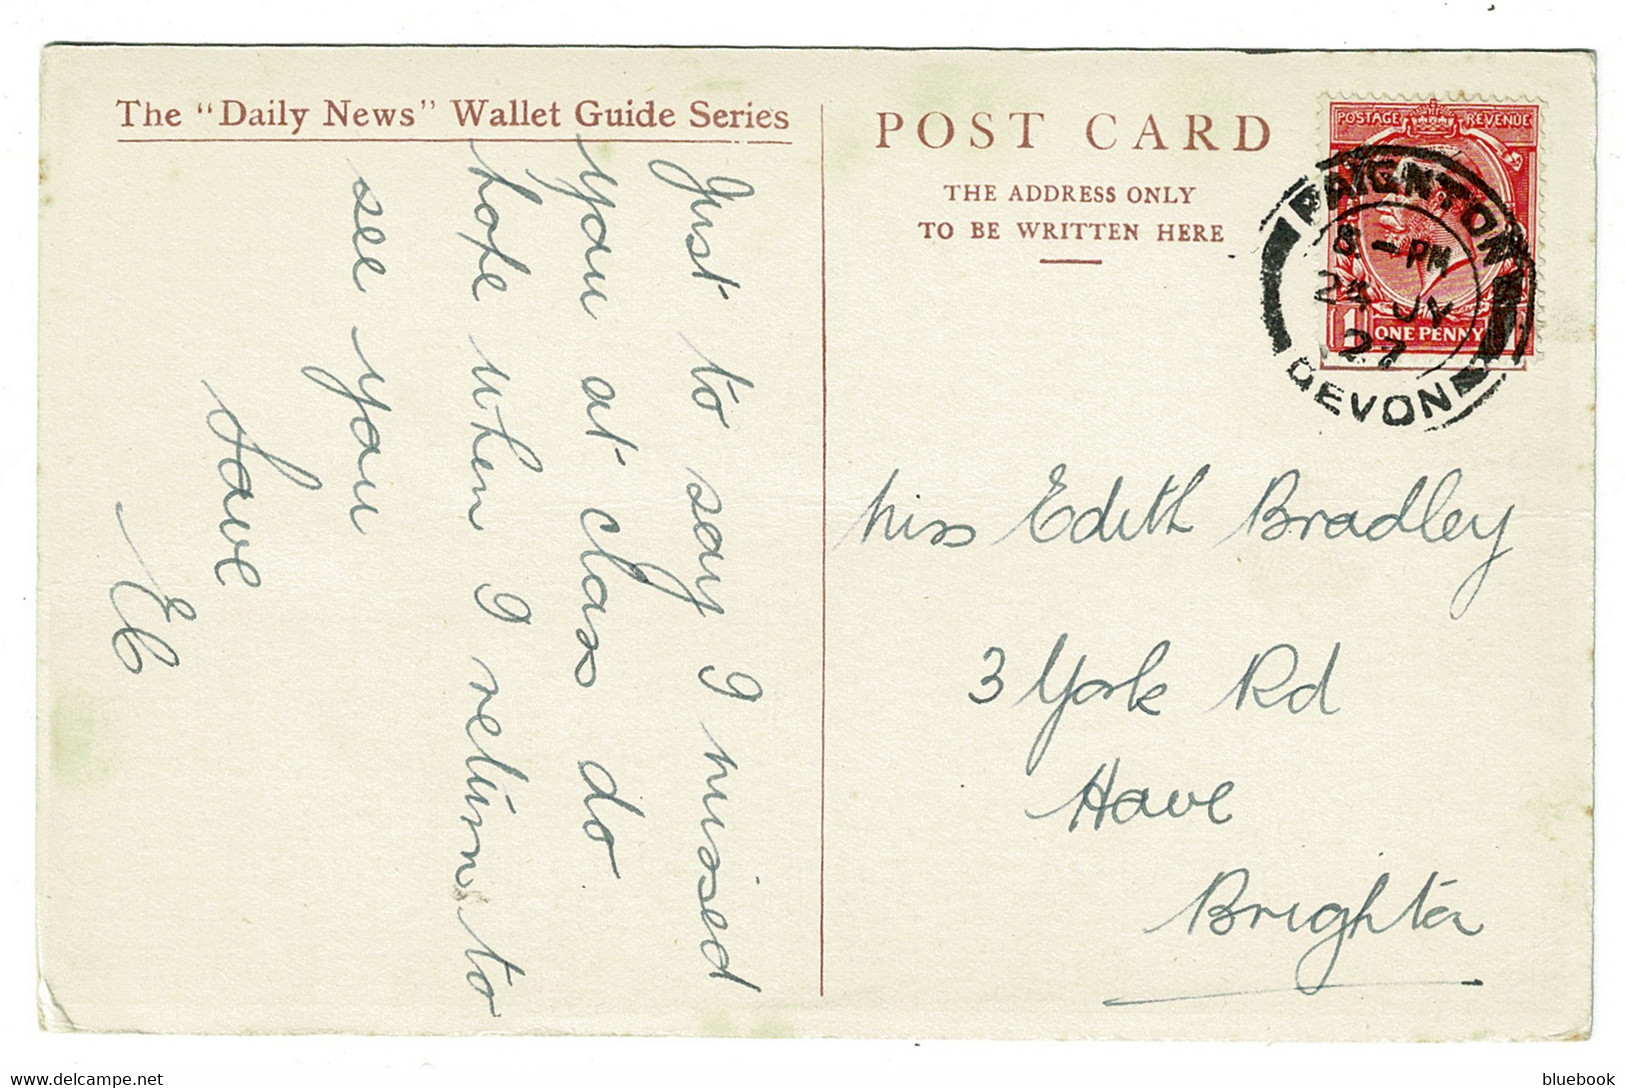 The "Daily News" Wallet Guide Series
Just to say I missed
you at class do
hope when I return to
see you
Love
EC
POST CARD
THE ADDRESS ONLY
TO BE WRITTEN HERE
POSTAGE REVENUE
1 ONE PENNY 1
PAIGNTON
PM
24 JL
27
DEVON
Miss Edith Bradley
3 York Rd
Hove
Brighton
bluebook
www.delcampe.net